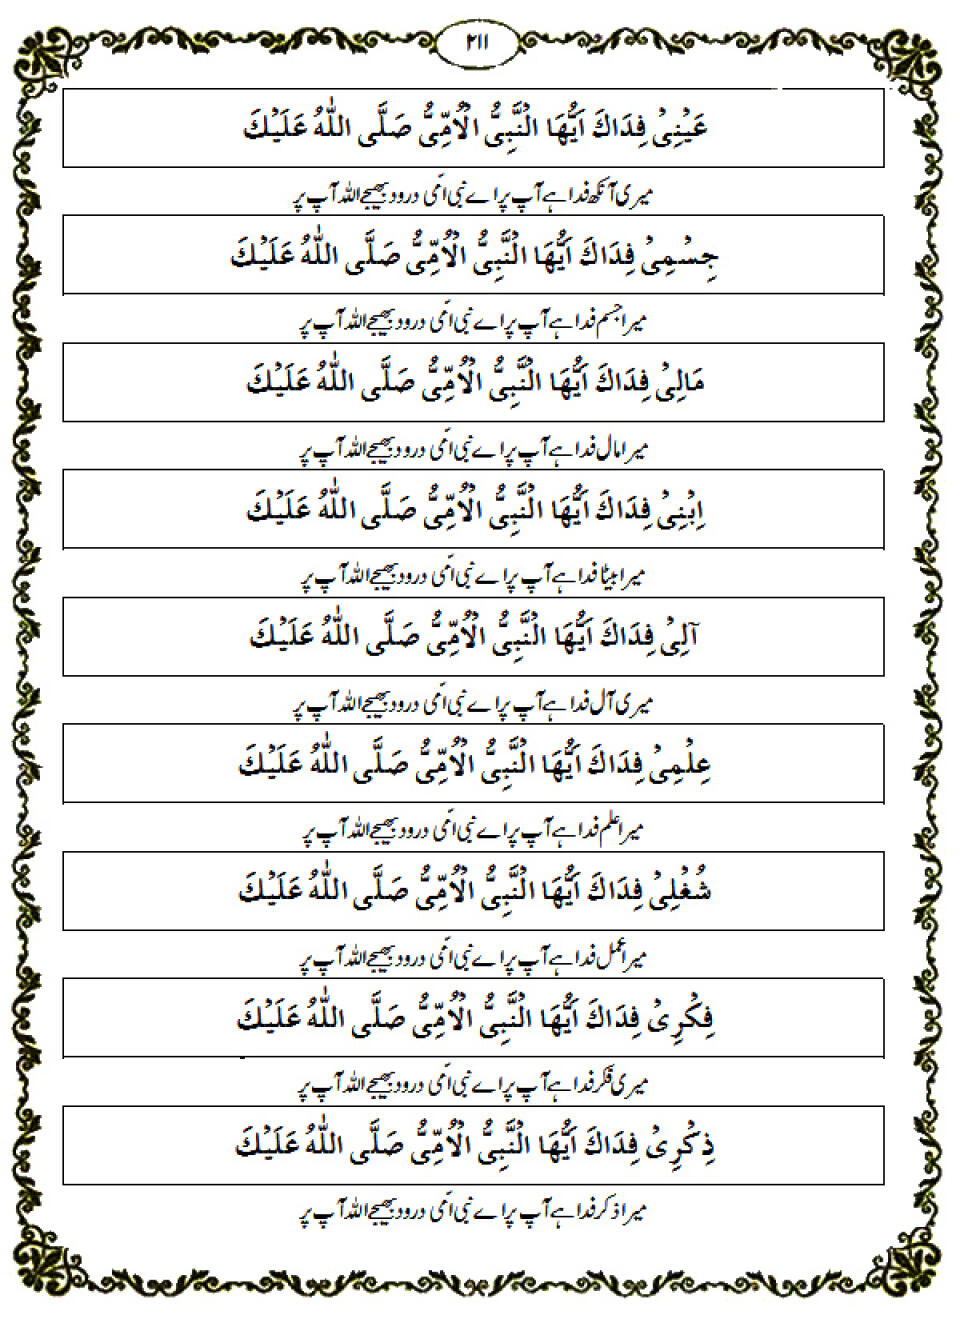 ۲۱۱
عَیْنِیْ فِدَاكَ اَیُّهَا الْنَّبِیُّ الْاُمِّیُّ صَلَّی اللّٰهُ عَلَیْكَ
میری آنکھ فدا ہے آپ پر اے نبی اُمّی درود بھیجے اللہ آپ پر
جِسْمِیْ فِدَاكَ اَیُّهَا الْنَّبِیُّ الْاُمِّیُّ صَلَّی اللّٰهُ عَلَیْكَ
میرا جسم فدا ہے آپ پر اے نبی اُمّی درود بھیجے اللہ آپ پر
مَالِیْ فِدَاكَ اَیُّهَا الْنَّبِیُّ الْاُمِّیُّ صَلَّی اللّٰهُ عَلَیْكَ
میرا مال فدا ہے آپ پر اے نبی اُمّی درود بھیجے اللہ آپ پر
اِبْنِیْ فِدَاكَ اَیُّهَا الْنَّبِیُّ الْاُمِّیُّ صَلَّی اللّٰهُ عَلَیْكَ
میرا بیٹا فدا ہے آپ پر اے نبی اُمّی درود بھیجے اللہ آپ پر
آلِیْ فِدَاكَ اَیُّهَا الْنَّبِیُّ الْاُمِّیُّ صَلَّی اللّٰهُ عَلَیْكَ
میری آل فدا ہے آپ پر اے نبی اُمّی درود بھیجے اللہ آپ پر
عِلْمِیْ فِدَاكَ اَیُّهَا الْنَّبِیُّ الْاُمِّیُّ صَلَّی اللّٰهُ عَلَیْكَ
میرا علم فدا ہے آپ پر اے نبی اُمّی درود بھیجے اللہ آپ پر
شُغْلِیْ فِدَاكَ اَیُّهَا الْنَّبِیُّ الْاُمِّیُّ صَلَّی اللّٰهُ عَلَیْكَ
میرا عمل فدا ہے آپ پر اے نبی اُمّی درود بھیجے اللہ آپ پر
فِكْرِیْ فِدَاكَ اَیُّهَا الْنَّبِیُّ الْاُمِّیُّ صَلَّی اللّٰهُ عَلَیْكَ
میری فکر فدا ہے آپ پر اے نبی اُمّی درود بھیجے اللہ آپ پر
ذِكْرِیْ فِدَاكَ اَیُّهَا الْنَّبِیُّ الْاُمِّیُّ صَلَّی اللّٰهُ عَلَیْكَ
میرا ذکر فدا ہے آپ پر اے نبی اُمّی درود بھیجے اللہ آپ پر